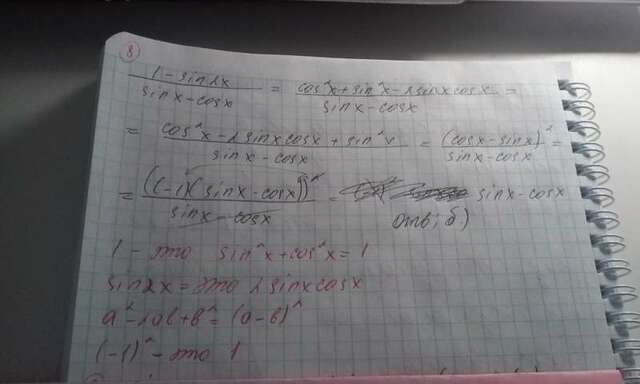 8
(1 - sin2x)/(sinx - cosx) = (cos²x + sin²x - 2sinxcosx)/(sinx - cosx) =
= (cos²x - 2sinxcosx + sin²x)/(sinx - cosx) = (cosx - sinx)²/(sinx - cosx) =
= ((-1)(sinx - cosx))²/(sinx - cosx) = sinx - cosx
отв; б)
1 - это sin²x + cos²x = 1
sin2x = это 2sinxcosx
a² - 2ab + b² = (a - b)²
(-1)² - это 1